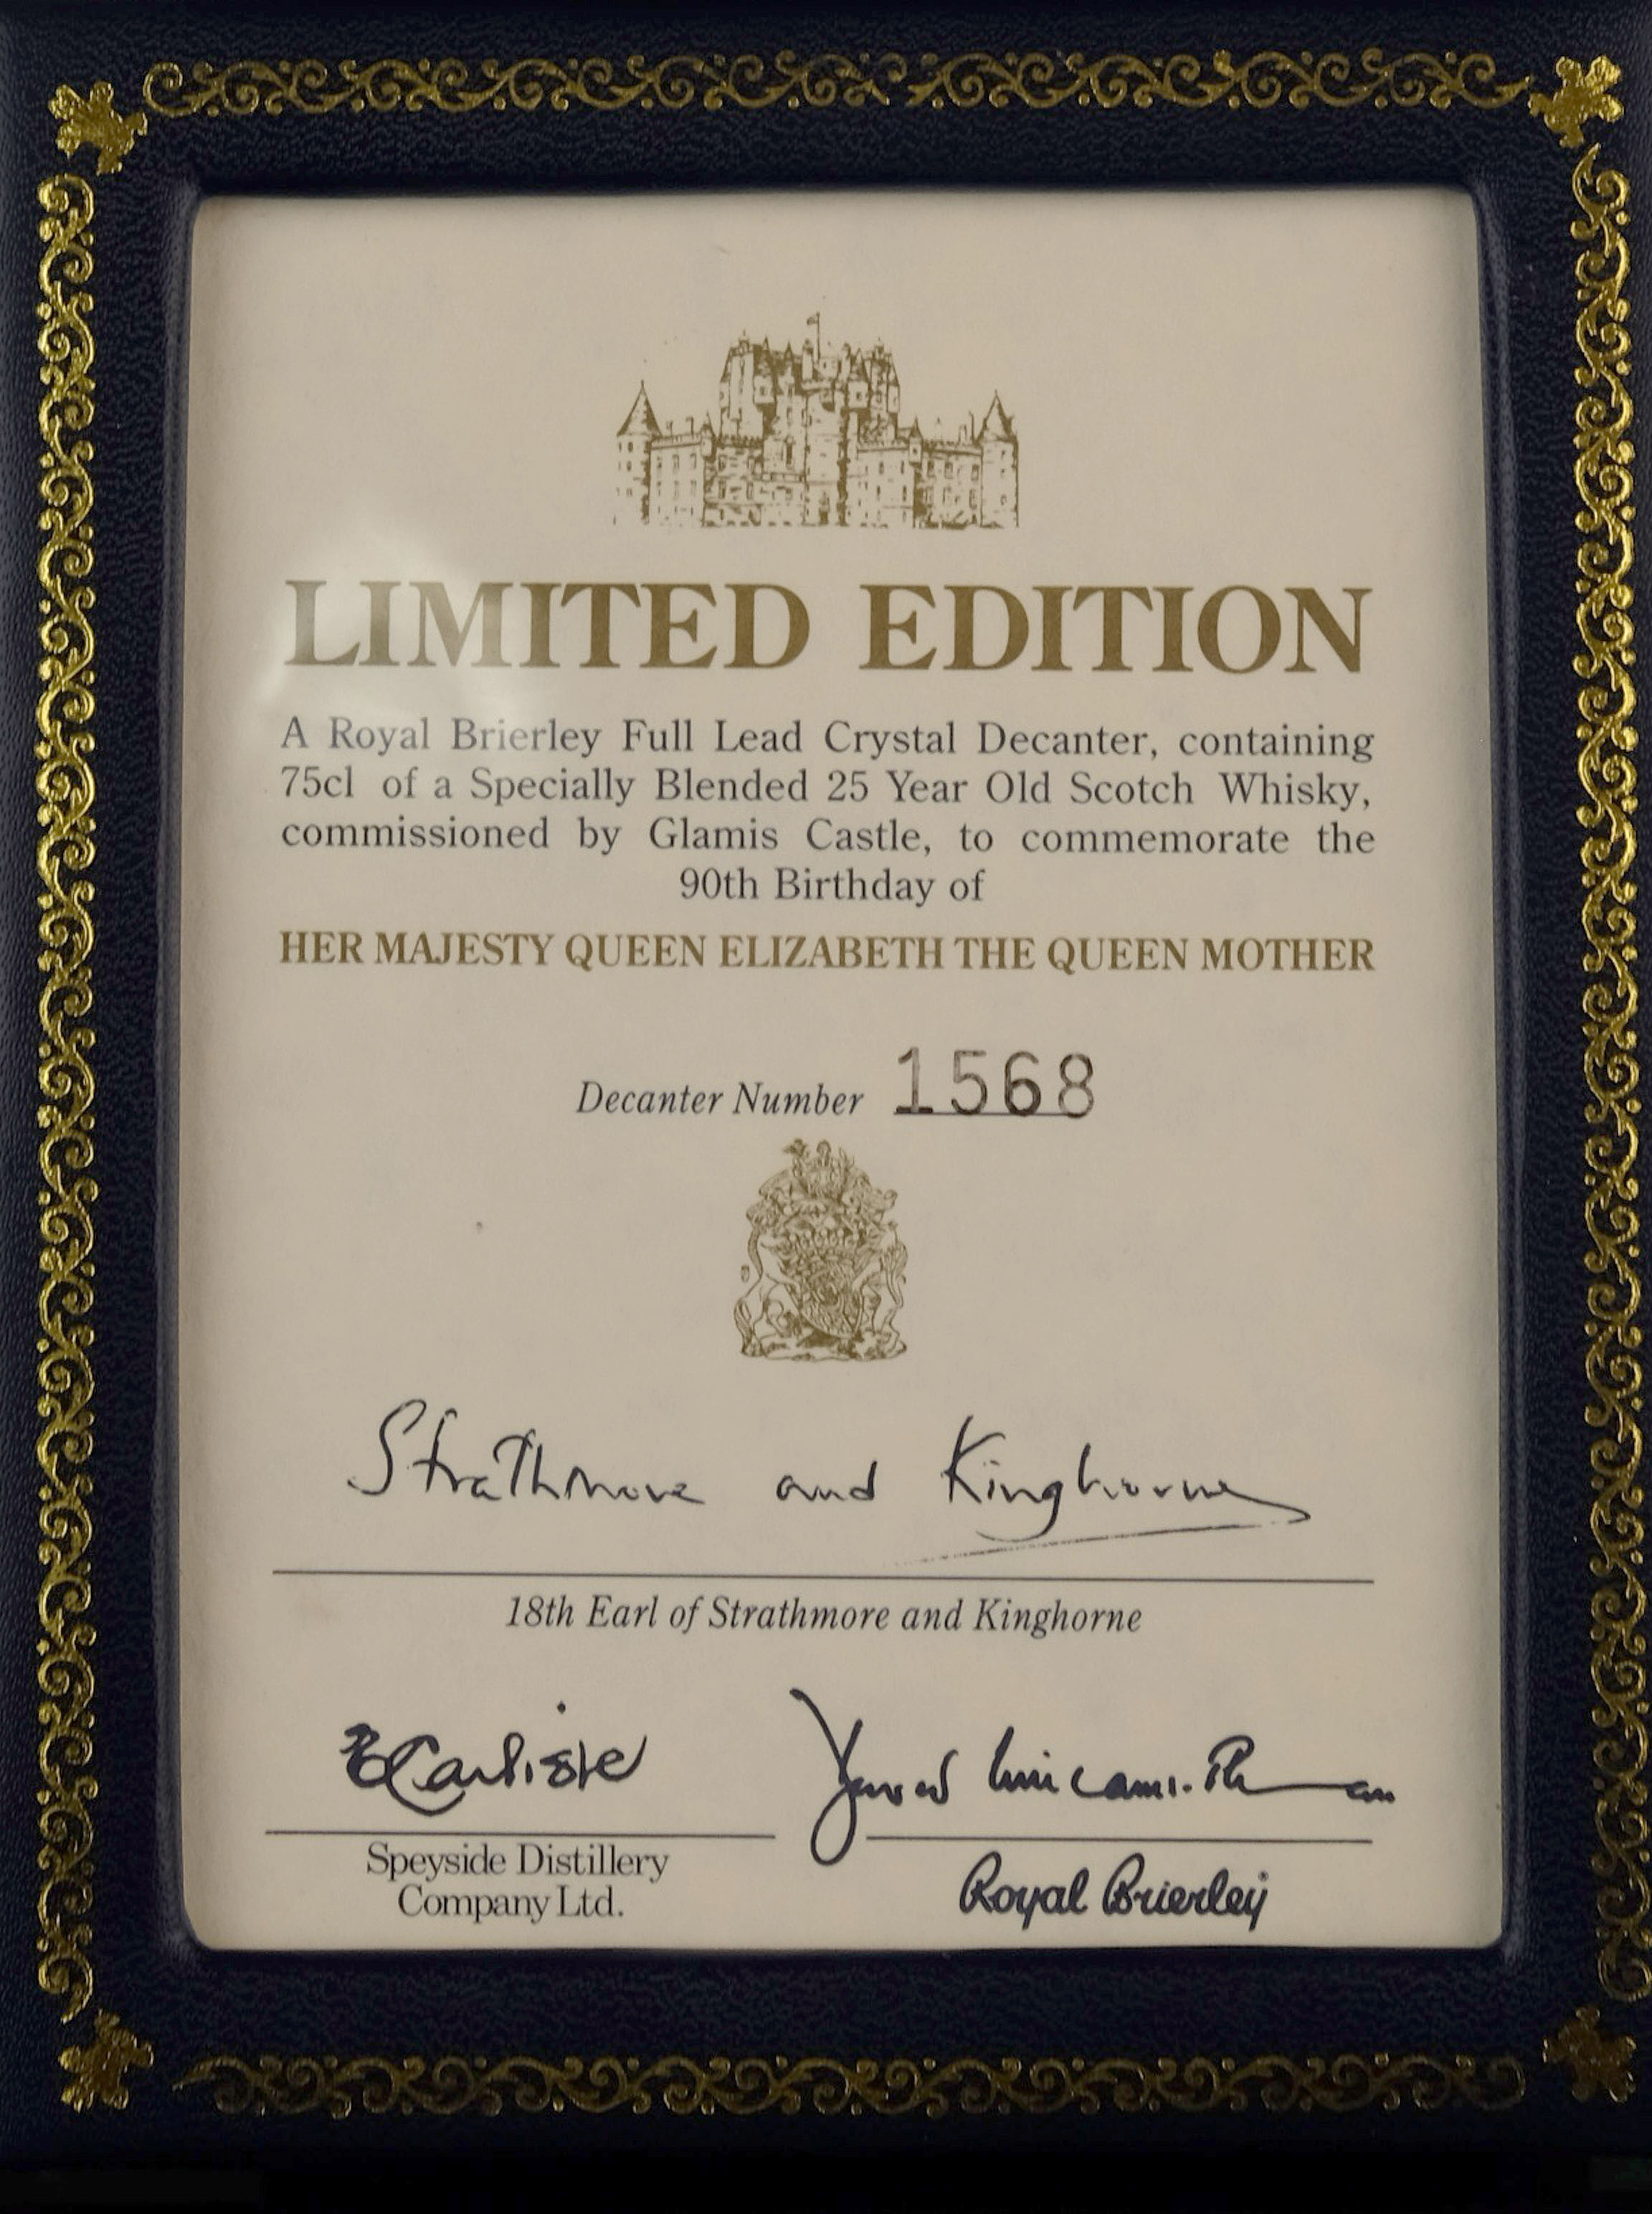 LIMITED EDITION
A Royal Brierley Full Lead Crystal Decanter, containing
75cl of a Specially Blended 25 Year Old Scotch Whisky,
commissioned by Glamis Castle, to commemorate the
90th Birthday of
HER MAJESTY QUEEN ELIZABETH THE QUEEN MOTHER
Decanter Number 1568
Strathmore and Kinghorne
18th Earl of Strathmore and Kinghorne
Carlisle
Speyside Distillery
Company Ltd.
Royal Brierley